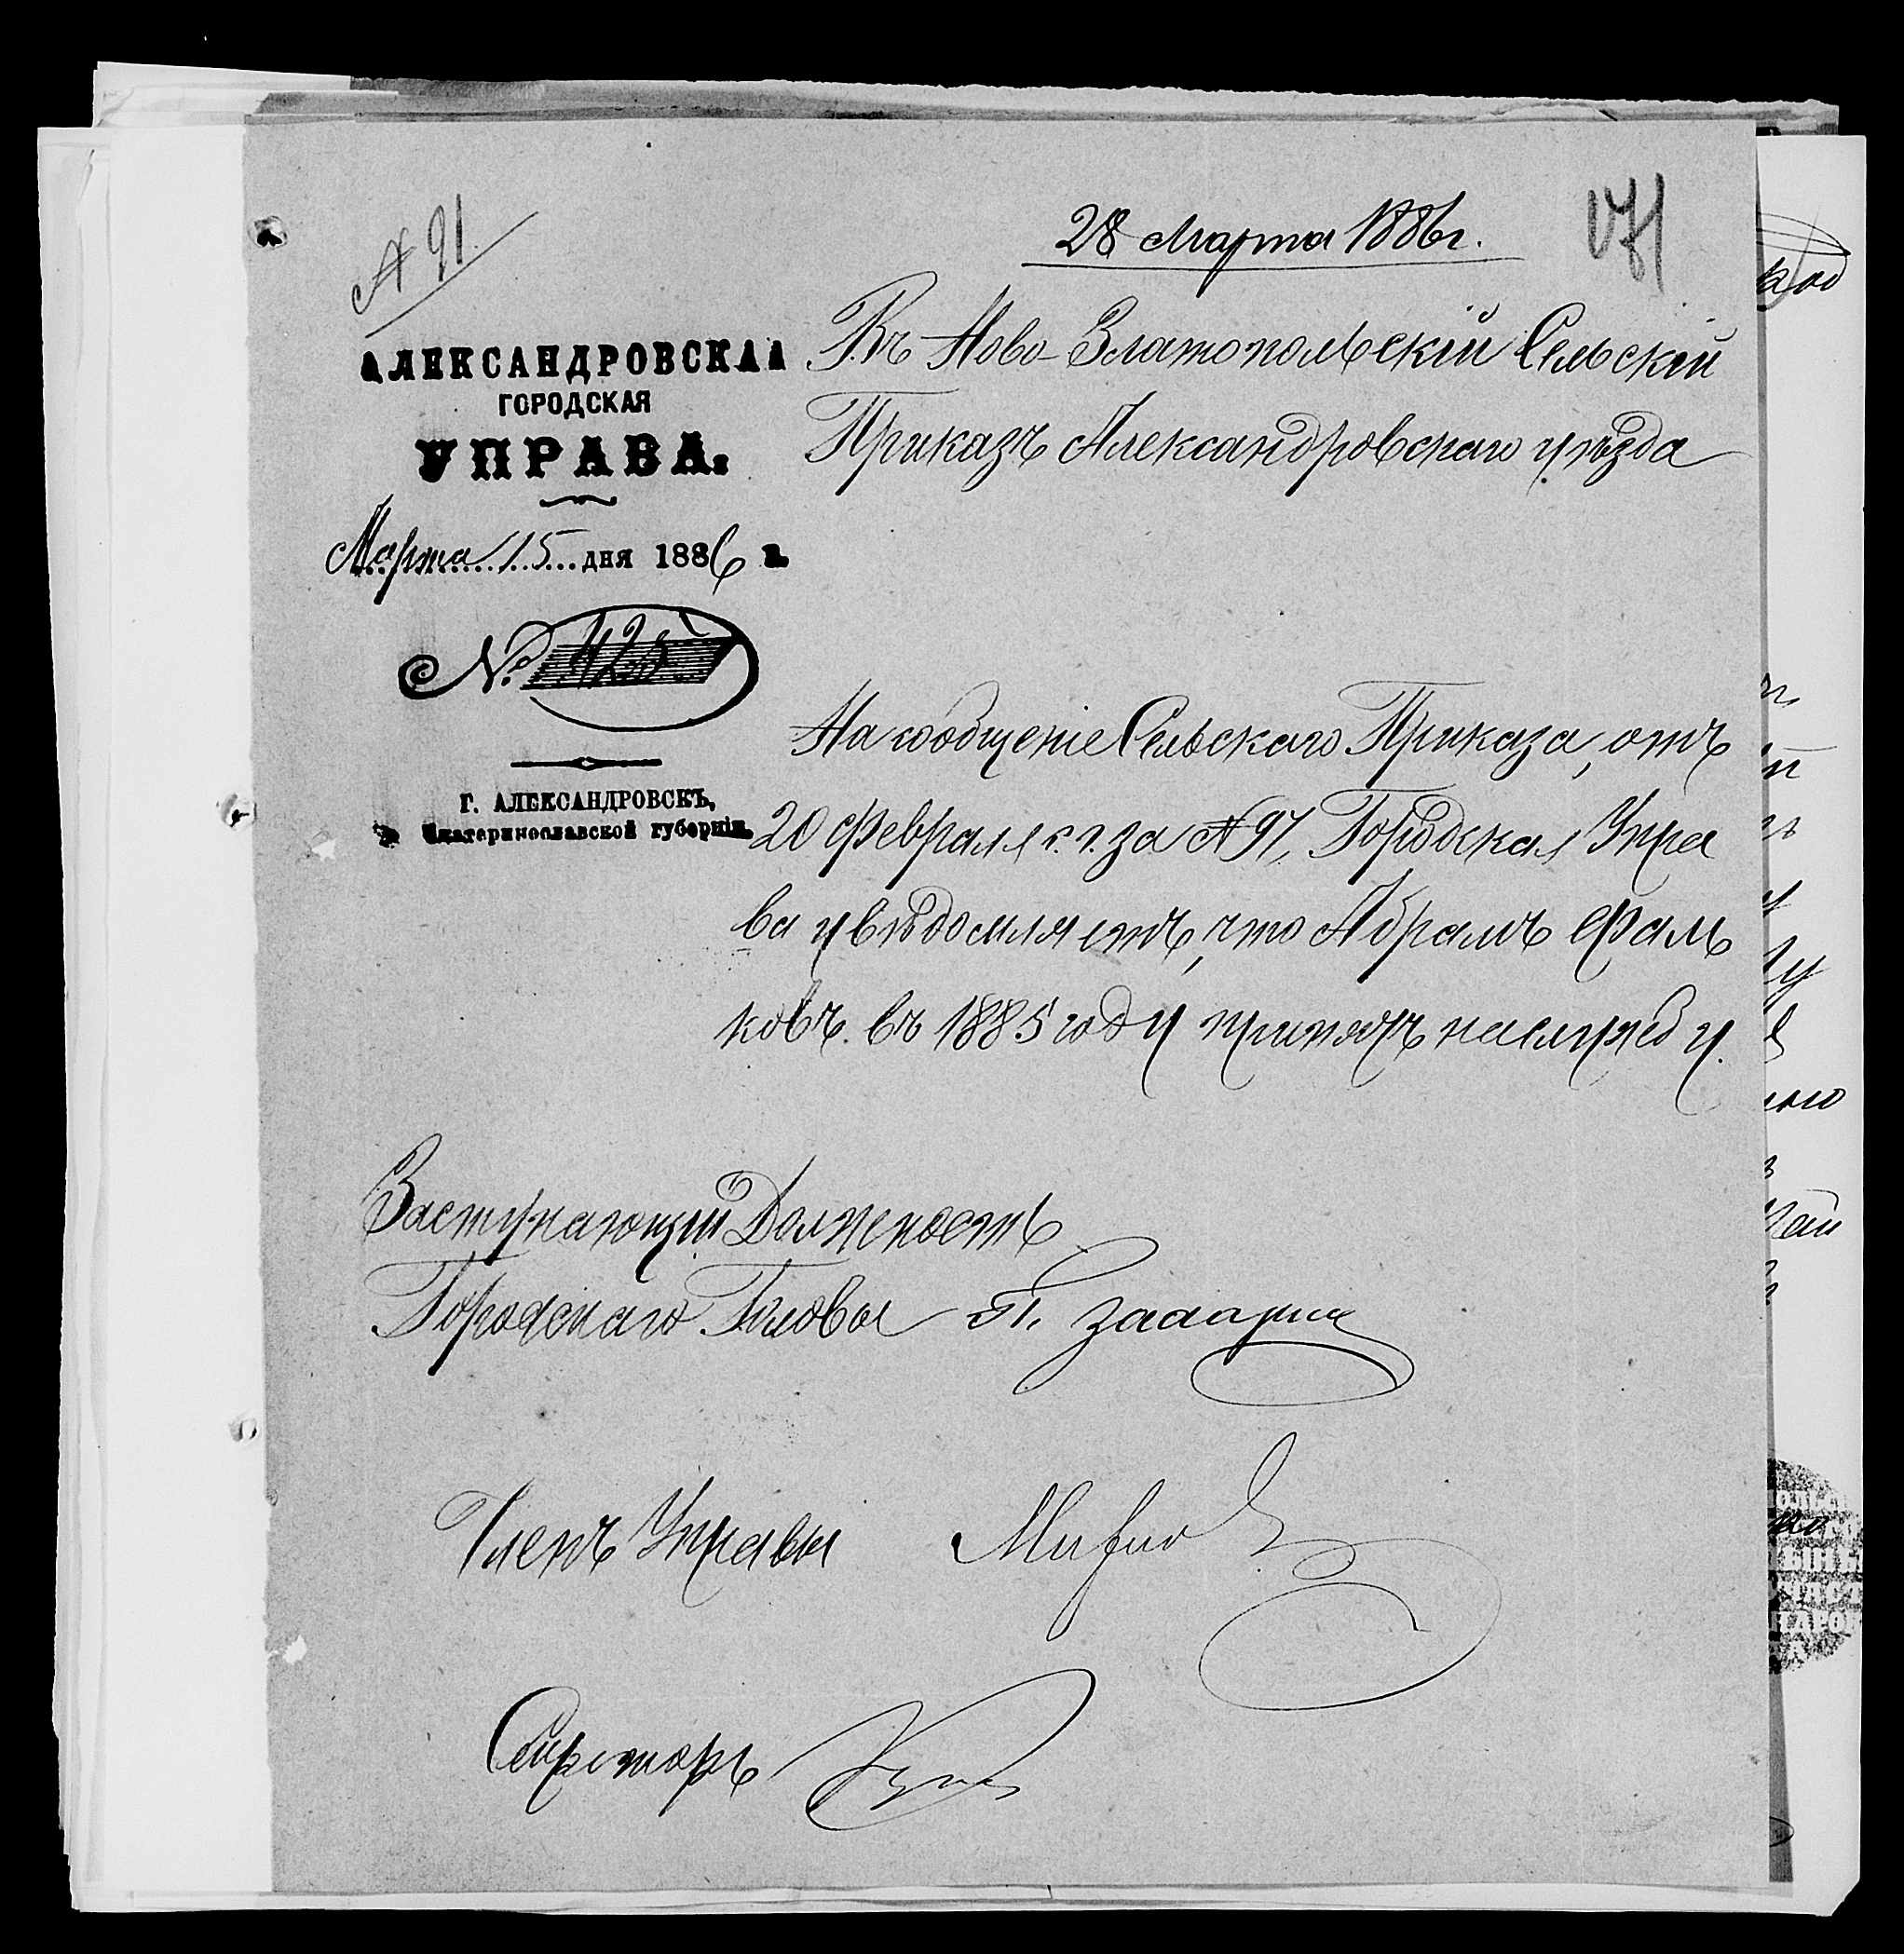 № 91
28 Марта 1886 г.
171
АЛЕКСАНДРОВСКАЯ
ГОРОДСКАЯ
УПРАВА.
Марта 15 дня 1886 г.
№ 425
Г. АЛЕКСАНДРОВСКЪ,
Екатеринославской губерніи.
Въ Ново-Златопольскій Сельскій
Приказъ Александровскаго уѣзда
На сообщеніе Сельскаго Приказа, отъ
20 Февраля с. г. за № 97, Городская Упра
ва увѣдомляетъ, что Абрамъ Фаль
ковъ въ 1885 году принятъ на службу.
Заступающій Должность
Городскаго Головы П.
Членъ Управы
Секретарь